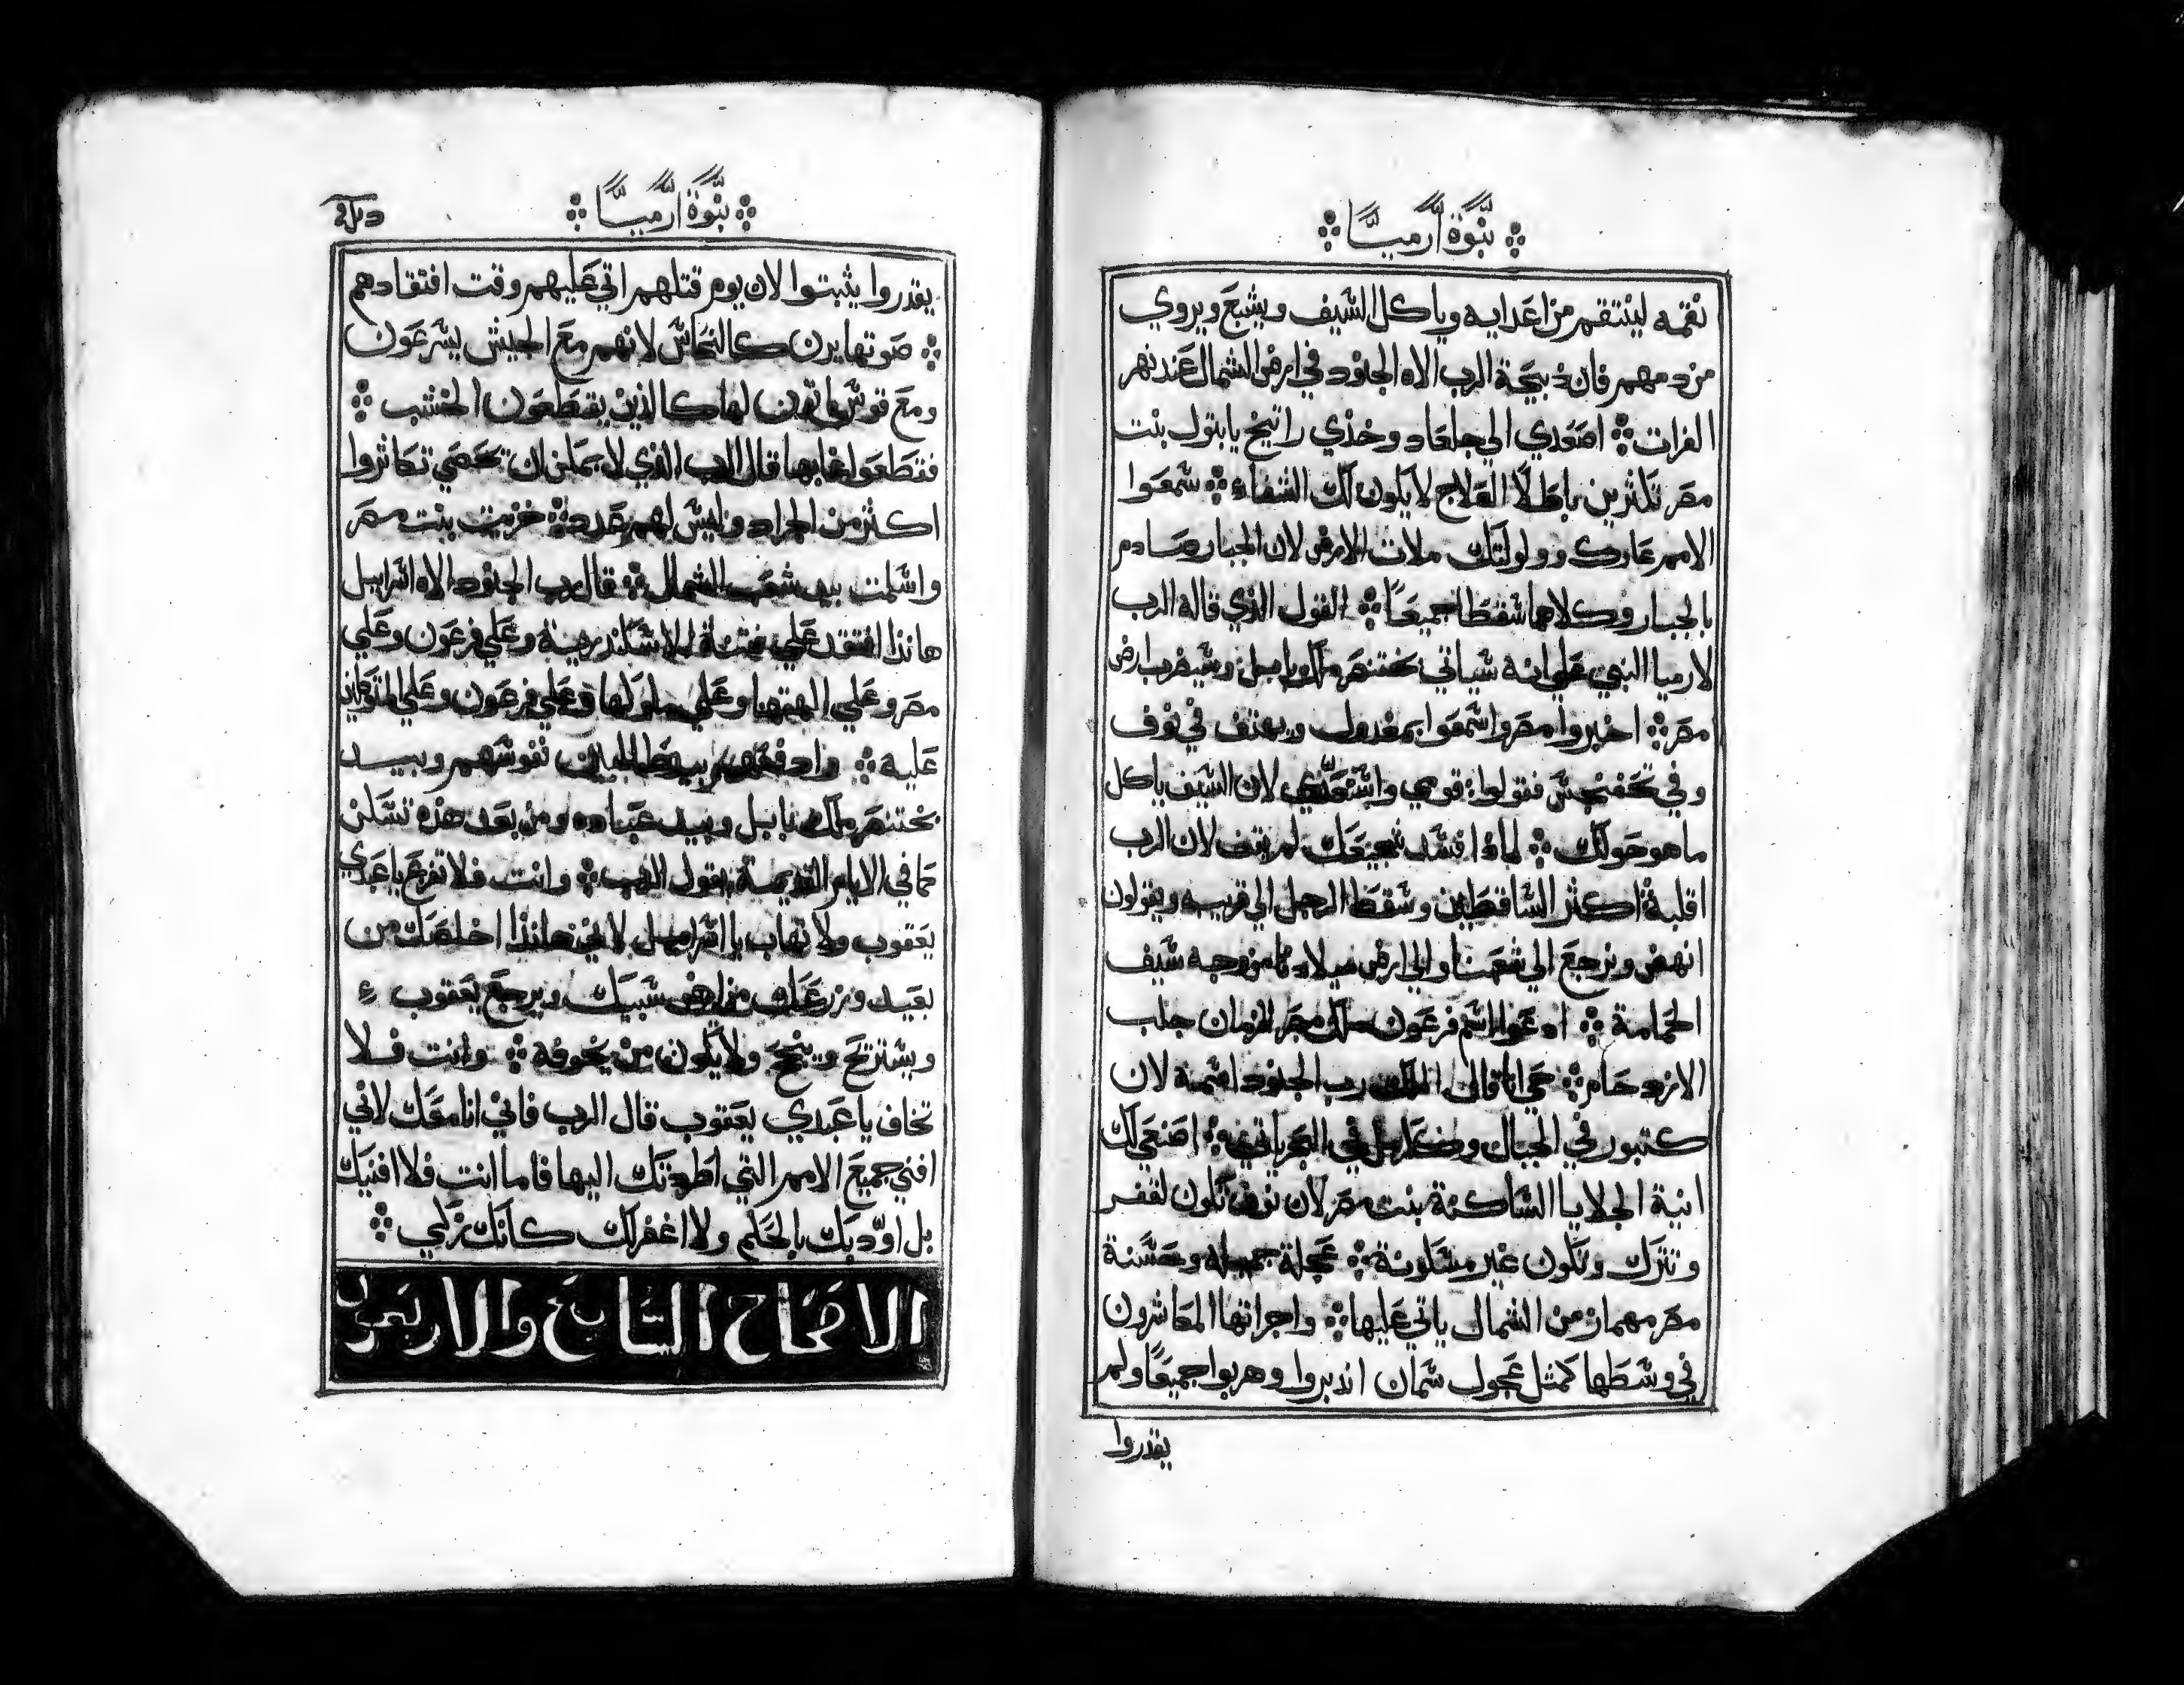 نبوة ارميا
نقمه لينتقم من اعدايه وياكل السيف ويشبع ويروي
من دمهم فان ذبيحة الرب الاه الجنود في ارض الشمال عند نهر
الفرات ܀ اصعدي الي جلعاد وخذي راتينج يابتول بنت
مصر تكثرين باطلاً العلاج لا يكون لك الشفاء ܀ سمعوا
الامم عارك وولولتك ملات الارض لان الجبار صادم
بالجبار وكلاهما سقطا جميعاً ܀ القول الذي قاله الرب
لارميا النبي علي انه سياتي بختنصر ملك بابل وسيضرب ارض
مصر ܀ اخبروا مصر واسمعوا بمغدول ويهتف في نوف
وفي تحفنحيس فقولوا قومي واستعدي لان السيف ياكل
ما هو حولك ܀ لماذا فسد شجيعك لم يقف لان الرب
اقلبه اكثر الساقطين وسقط الرجل الي قريبه ويقولون
انهض ونرجع الي شعبنا والي ارض ميلادنا من وجه سيف
الحمامة ܀ ادعوا اسم فرعون ملك مصر الزمان جلب
الازدحام ܀ حي انا قال الملك رب الجنود اسمه لان
كتبور في الجبال وككارمل في البحر ياتي ܀ اصنعي لك
انية الجلايا الساكنة بنت مصر لان نوف تكون لقفر
وتترك وتكون غير مسكونة ܀ عجلة جميلة وحسنة
مصر مهماز من الشمال ياتي عليها ܀ واجراتها المكاثرون
في وسطها كمثل عجول سمان اندبروا وهربوا جميعاً ولم
يقدروا
نبوة ارميا
يقدروا يثبتوا لان يوم قتلهم اتي عليهم وقت افتقادهم
܀ صوتها يرن كالنحاس لانهم مع الجيش يسرعون
ومع فوس ياتون لها كالذين يقطعون الخشب ܀
فقطعوا غابها قال الرب الذي لا يمكن ان تحصي تكاثروا
اكثر من الجراد وليس لهم عدد ܀ خزيت بنت مصر
واسلمت بيد شعب الشمال ܀ قال رب الجنود الاه اسراييل
هانذا افتقد علي فتنة الاسكندرية وعلي فرعون وعلي
مصر وعلي الهتها وعلي ملوكها وعلي فرعون وعلي المتوكلين
عليه ܀ وادفعهم بيد طالبين نفوسهم وبيد
بختنصر ملك بابل وبيد عباده ومن بعد هذه تسكن
كما في الايام القديمة يقول الرب ܀ وانت فلا تفزع يا عبدي
يعقوب ولا تهاب يا اسراييل لاني هانذا اخلصك من
بعيد وزرعك من ارض سبيك ويرجع يعقوب
ويستريح وينجح ولا يكون من يخوفه ܀ وانت فلا
تخاف يا عبدي يعقوب قال الرب فاني انا معك لاني
افني جميع الامم التي اطردتك اليها فاما انت فلا افنيك
بل اودبك بالحكم ولا اغفر لك كانك زكي ܀
الاصحاح السابع والاربعون